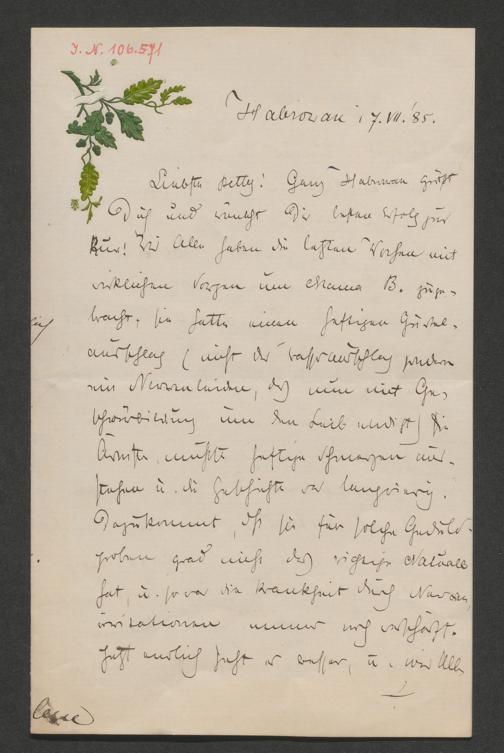 J. N. 106.571
Habrowan, 17. VII. '85.
Liebste Betty! Ganz Habrowan grüßt
Dich und wünscht Dir besten Erfolg zur
Kur! Wir Alle haben die letzten Wochen mit
wirklichen Sorgen um Mama B. zuge-
bracht. Sie hatte einen heftigen Gürtel-
ausschlag (nicht der Hautausschlag sondern
ein Nervenleiden, das nun mit Ge-
schwürbildung um den Leib endigt) die
Ärmste mußte heftige Schmerzen aus-
stehen u. die Geschichte war langwierig.
Dazukommt, daß sie für solche Geduld-
proben grad nicht das richtige Naturell
hat, u. so war die Krankheit durch Nerven-
irritationen immer noch verschärft.
Jetzt endlich geht es besser, u. wir Alle